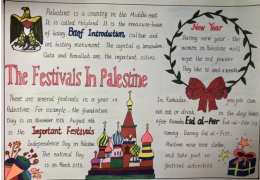 Palestine is a country in the Middle east.
It is called Holyland. It is the treasure-house
of being Brief Introduction culture and
art history monument. The capital is Jerusalem
Gaza and Ramallah are the important cities.
New Year
During new year the
women in Palestine will
wipe the red powder
They like to eat sweets
The Festivals In Palestine
There are several festivals in a year in
Palestine. For example the foundation
Day is on November 11th. August 4th
is the Important Festivals
Independence Day in Palestine
The national Day
is on March 30th.
In Ramadan people can
not eat or drink in the day time
After Ramadan Eid al-Fitr is
coming. During Eid al-Fitr
Muslims wear new clothes
and take part in
festival activities